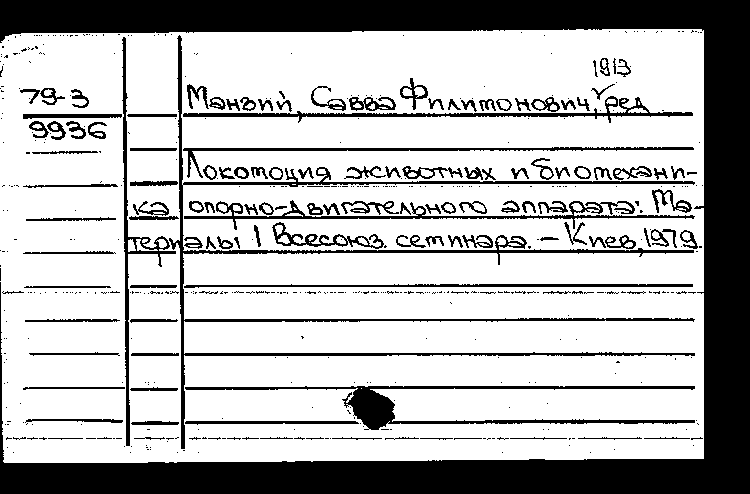 1913
79-3 Манзий, Савва Филимонович, ред
9936
Локомоция животных и биомехани-
ка опорно-двигательного аппарата: Ма-
териалы I Всесоюз. семинара. – Киев, 1979.